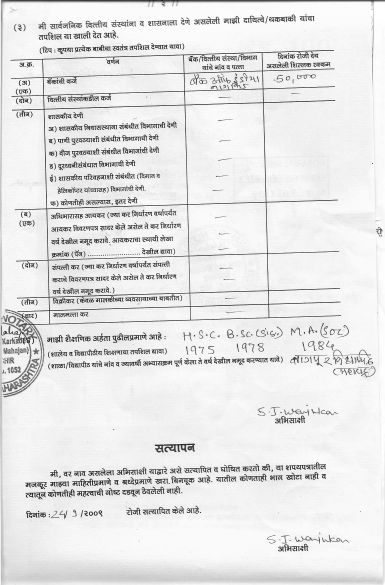 (३) मी सार्वजनिक वित्तीय संस्थांना व शासनाला देणे असलेली माझी दायित्वे/थकबाकी यांचा
तपशिल या खाली देत आहे.
(टिप : कृपया प्रत्येक बाबीचा स्वतंत्र तपशिल देण्यात यावा)
अ.क्र. वर्णन बँक/वित्तीय संस्था/विभाग यांचे नांव व पत्ता दिनांक रोजी देय असलेली शिल्लक रक्कम
(अ) (एक) बँकांची कर्जे बँक ऑफ इंडीया ५०,०००
(दोन) वित्तीय संस्थांकडील कर्जे —
(तीन) शासकीय देणी
अ) शासकीय निवासस्थाना संबंधीत विभागाची देणी —
ब) पाणी पुरवठ्याशी संबंधीत विभागाची देणी —
क) वीज पुरवठ्याशी संबंधीत विभागांची देणी —
ड) दूरध्वनीसंबंधात विभागाची देणी —
ई) शासकीय परिवहनाशी संबंधीत (विमान व
हेलिकॉप्टर यांच्यासह) विभागांची देणी. —
फ) कोणतीही असल्यास, इतर देणी —
(ब) (एक) अधिभारासह आयकर (ज्या कर निर्धारण वर्षापर्यंत
आयकर विवरणपत्र सादर केले असेल ते कर निर्धारण
वर्ष देखील नमूद करावे. आयकराचा स्थायी लेखा
क्रमांक (पॅन) .................... देखील द्यावा)
(दोन) संपत्ती कर (ज्या कर निर्धारण वर्षापर्यंत संपत्ती
कराचे विवरणपत्र सादर केले असेल ते कर निर्धारण
वर्ष देखील नमूद करावे.)
(तीन) विक्रीकर (केवळ मालकीच्या व्यवसायाच्या बाबतीत)
(चार) मालमत्ता कर
NOTAR
Mahajan)
MAHARASHTRA
माझी शैक्षणिक अर्हता पुढीलप्रमाणे आहे : H.S.C. B.Sc. M.A.
1975 1978 1984
(शालेय व विद्यापीठीय शिक्षणाचा तपशिल द्यावा)
(शाळा/विद्यापीठ यांचे नांव व ज्यावर्षी अभ्यासक्रम पूर्ण केला ते वर्ष देखील नमूद करण्यात यावे) नागपूर विद्यापीठ
अभिसाक्षी
सत्यापन
मी, वर नाव असलेला अभिसाक्षी याद्वारे असे सत्यापित व घोषित करतो की, या शपथपत्रातील
मजकूर माझ्या माहितीप्रमाणे व श्रध्देप्रमाणे खरा बिनचूक आहे. यातील कोणताही भाग खोटा नाही व
त्यातून कोणतीही महत्वाची गोष्ट दडवून ठेवलेली नाही.
दिनांक : 24/9/२००९ रोजी सत्यापित केले आहे.
अभिसाक्षी